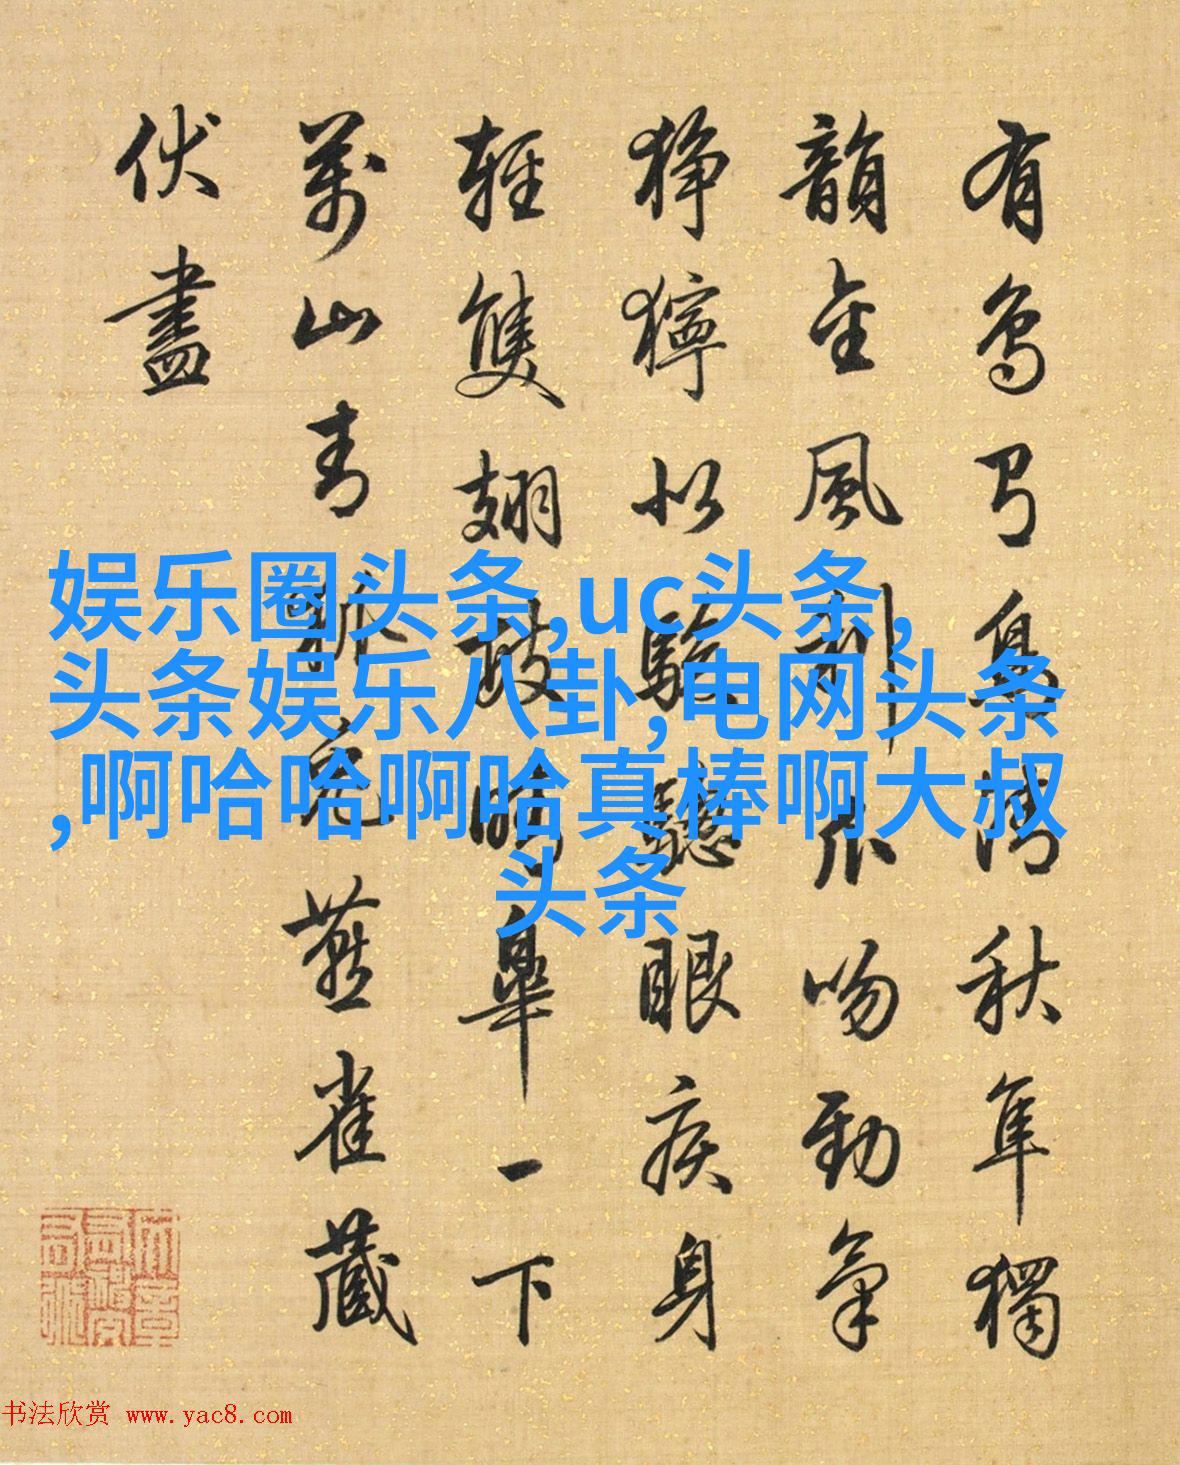 有鳥鳥清秋隼獨
韻金風爪吻勁氣
猙獰似眼疾身
輕雙翅鼓皋一下
萬山青燕雀藏
伏盡
娱乐圈头条,uc头条,
头条娱乐八卦,电网头条
,啊哈哈啊哈真棒啊大叔
头条
书法欣赏 www.yac8.com